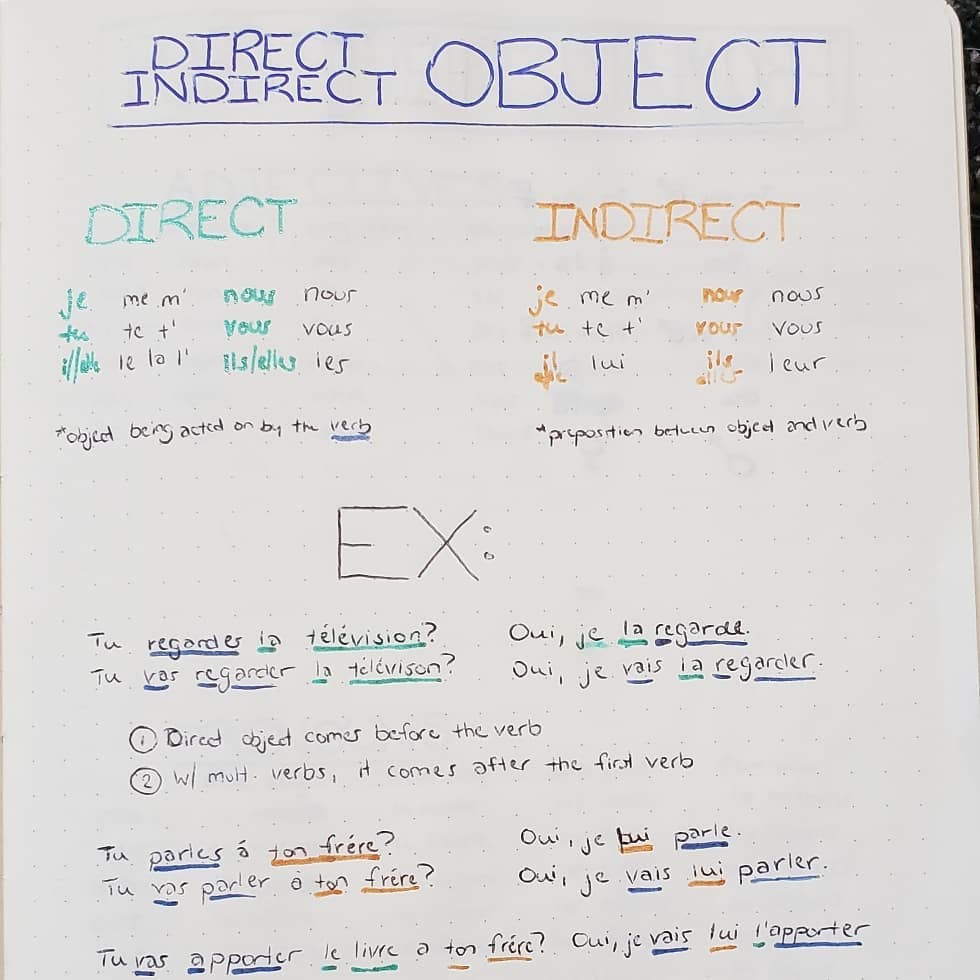 DIRECT
INDIRECT OBJECT
DIRECT
je me m' nous nous
tu te t' vous vous
il/elle le la l' ils/elles les
*object being acted on by the verb
INDIRECT
je me m' nous nous
tu te t' vous vous
il elle lui ils elles leur
*preposition between object and verb
EX:
Tu regardes la télévision? Oui, je la regarde.
Tu vas regarder la télévison? Oui, je vais la regarder.
① Direct object comes before the verb
② w/ mult. verbs, it comes after the first verb
Tu parles á ton frére? Oui, je lui parle.
Tu vas parler á ton frére? Oui, je vais lui parler.
Tu vas apporter le livre a ton frére? Oui, je vais lui l'apporter